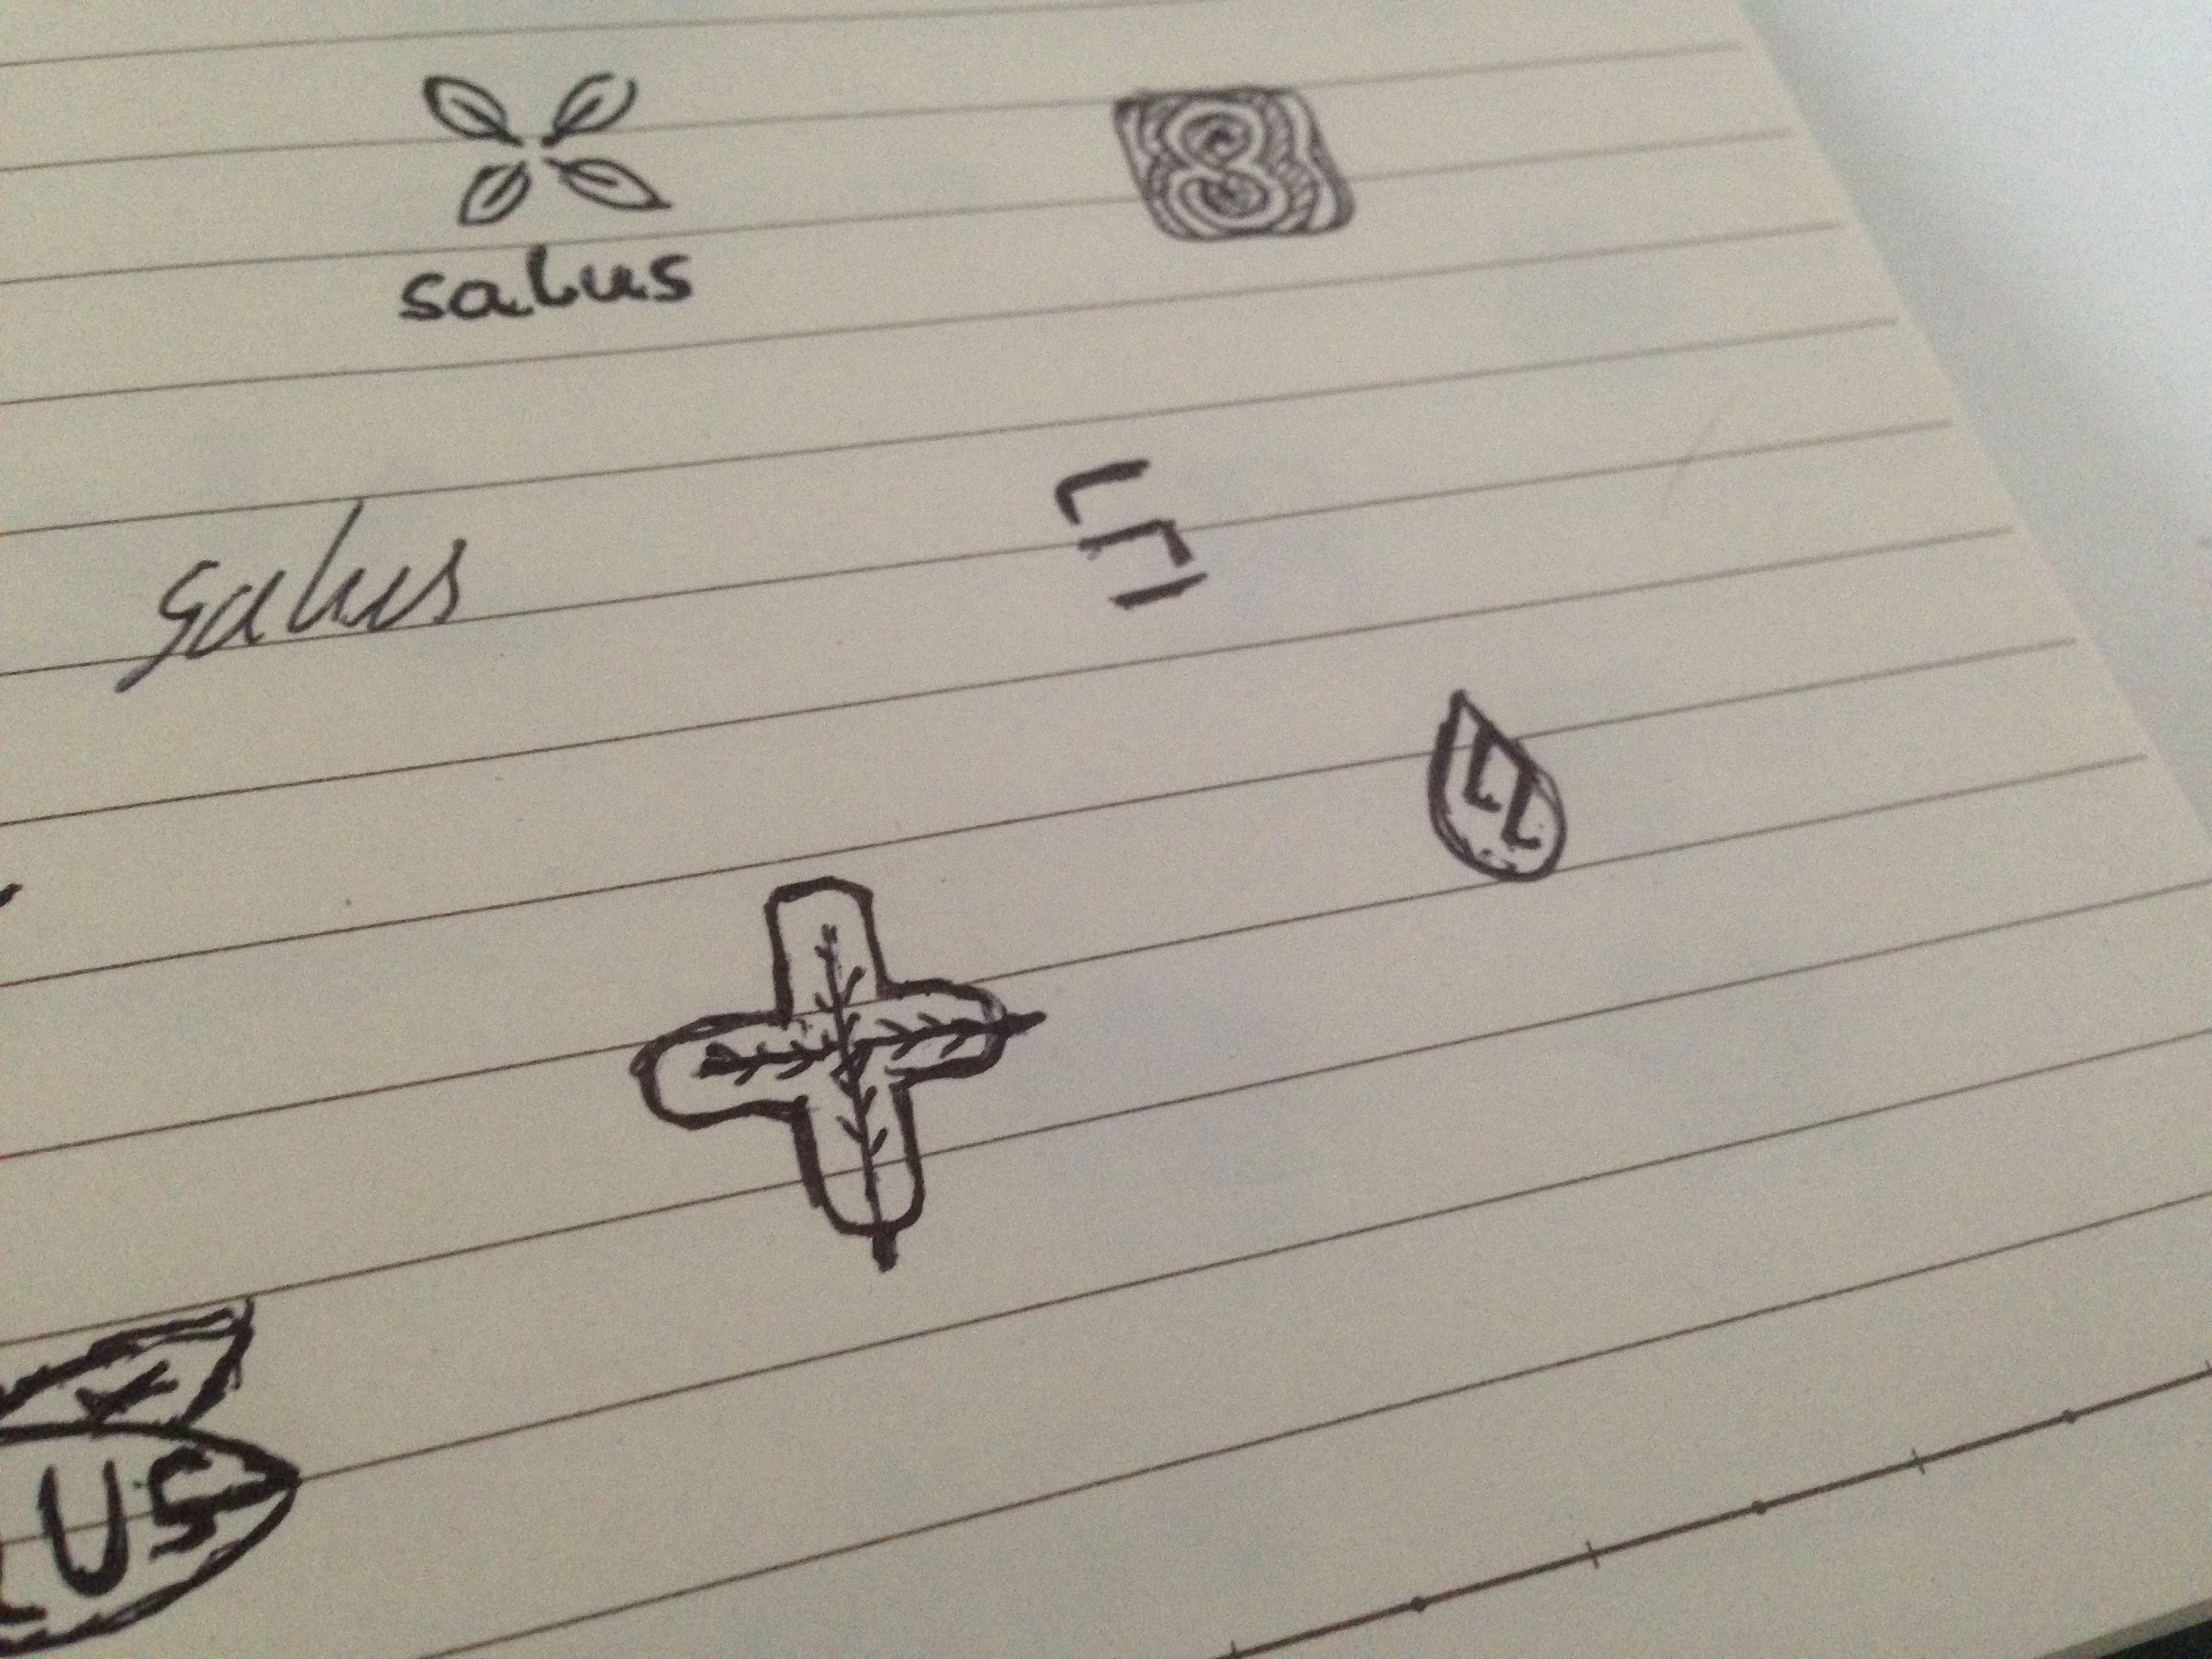 salus
8
salus
US